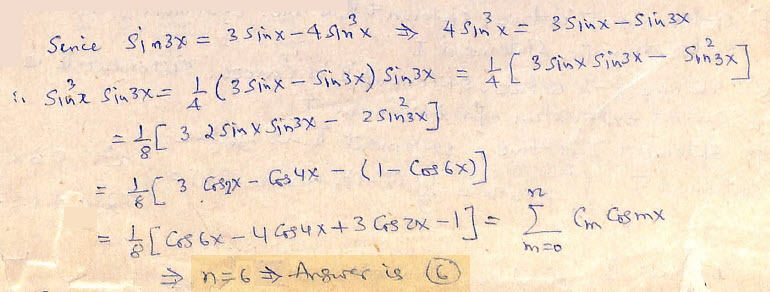 Sence Sin3x = 3 Sinx - 4 Sin³x ⇒ 4 Sin³x = 3 Sinx - Sin3x
∴ Sin³x Sin3x = 1/4 (3 Sinx - Sin3x) Sin3x = 1/4 [ 3 Sinx Sin3x - Sin²3x ]
= 1/8 [ 3 2 Sinx Sin3x - 2 Sin²3x ]
= 1/8 [ 3 Cos2x - Cos4x - (1 - Cos6x) ]
= 1/8 [ Cos6x - 4 Cos4x + 3 Cos2x - 1 ] = Σ_{m=0}^{n} Cm Cosmx
⇒ n = 6 ⇒ Answer is (6)